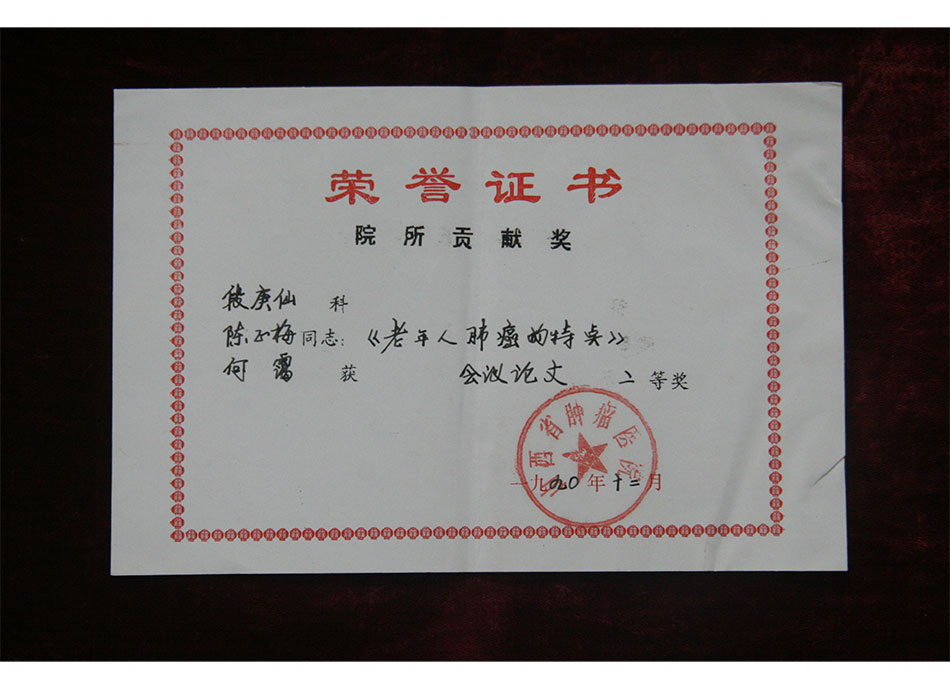 荣誉证书
院所贡献奖
段庚仙 科
陈正梅同志：《老年人肺癌的特点》
何霭 获 会议论文 二等奖
山西省肿瘤医院
一九九0年十二月